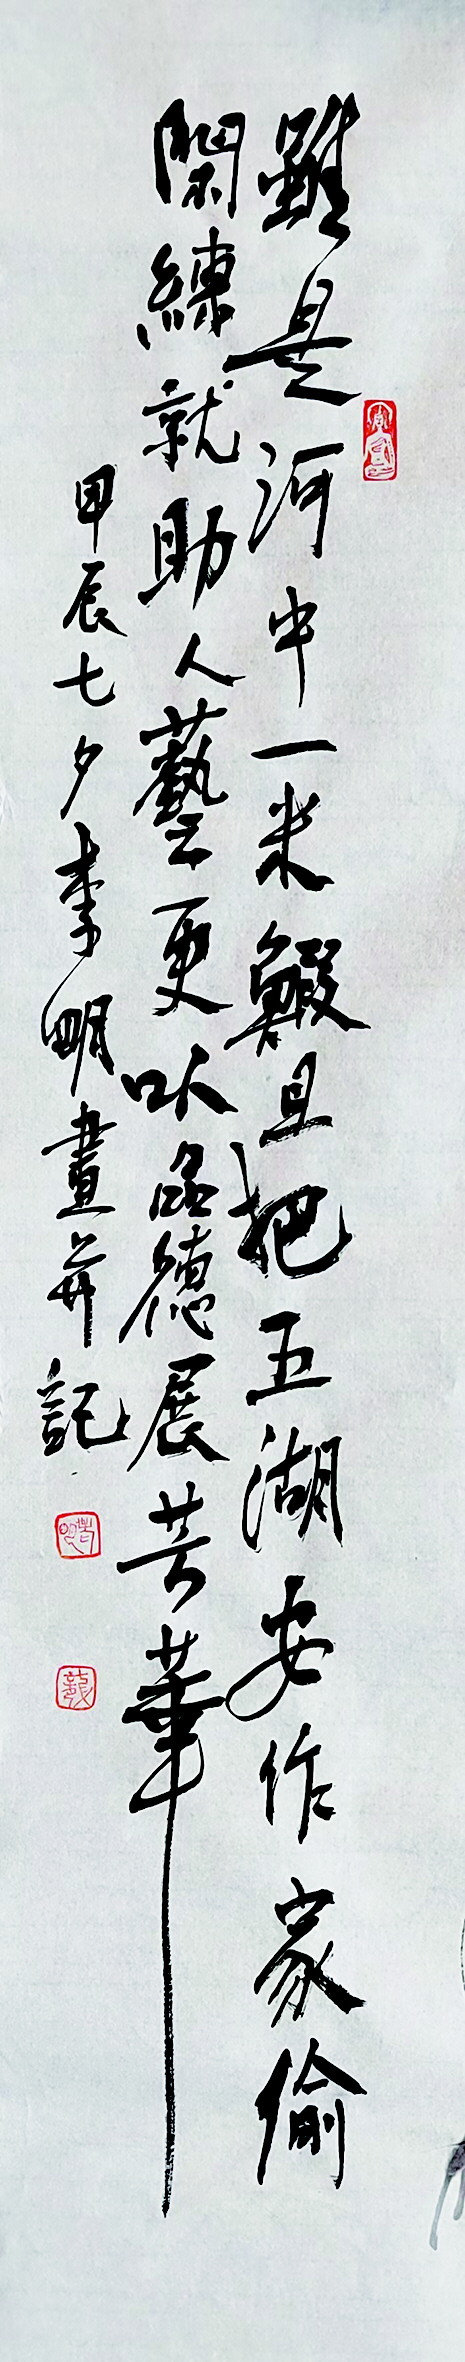 雖是河中一米鰕且把五湖安作家偷
閑練就助人藝更以品德展芳華
甲辰七夕李明畫并記